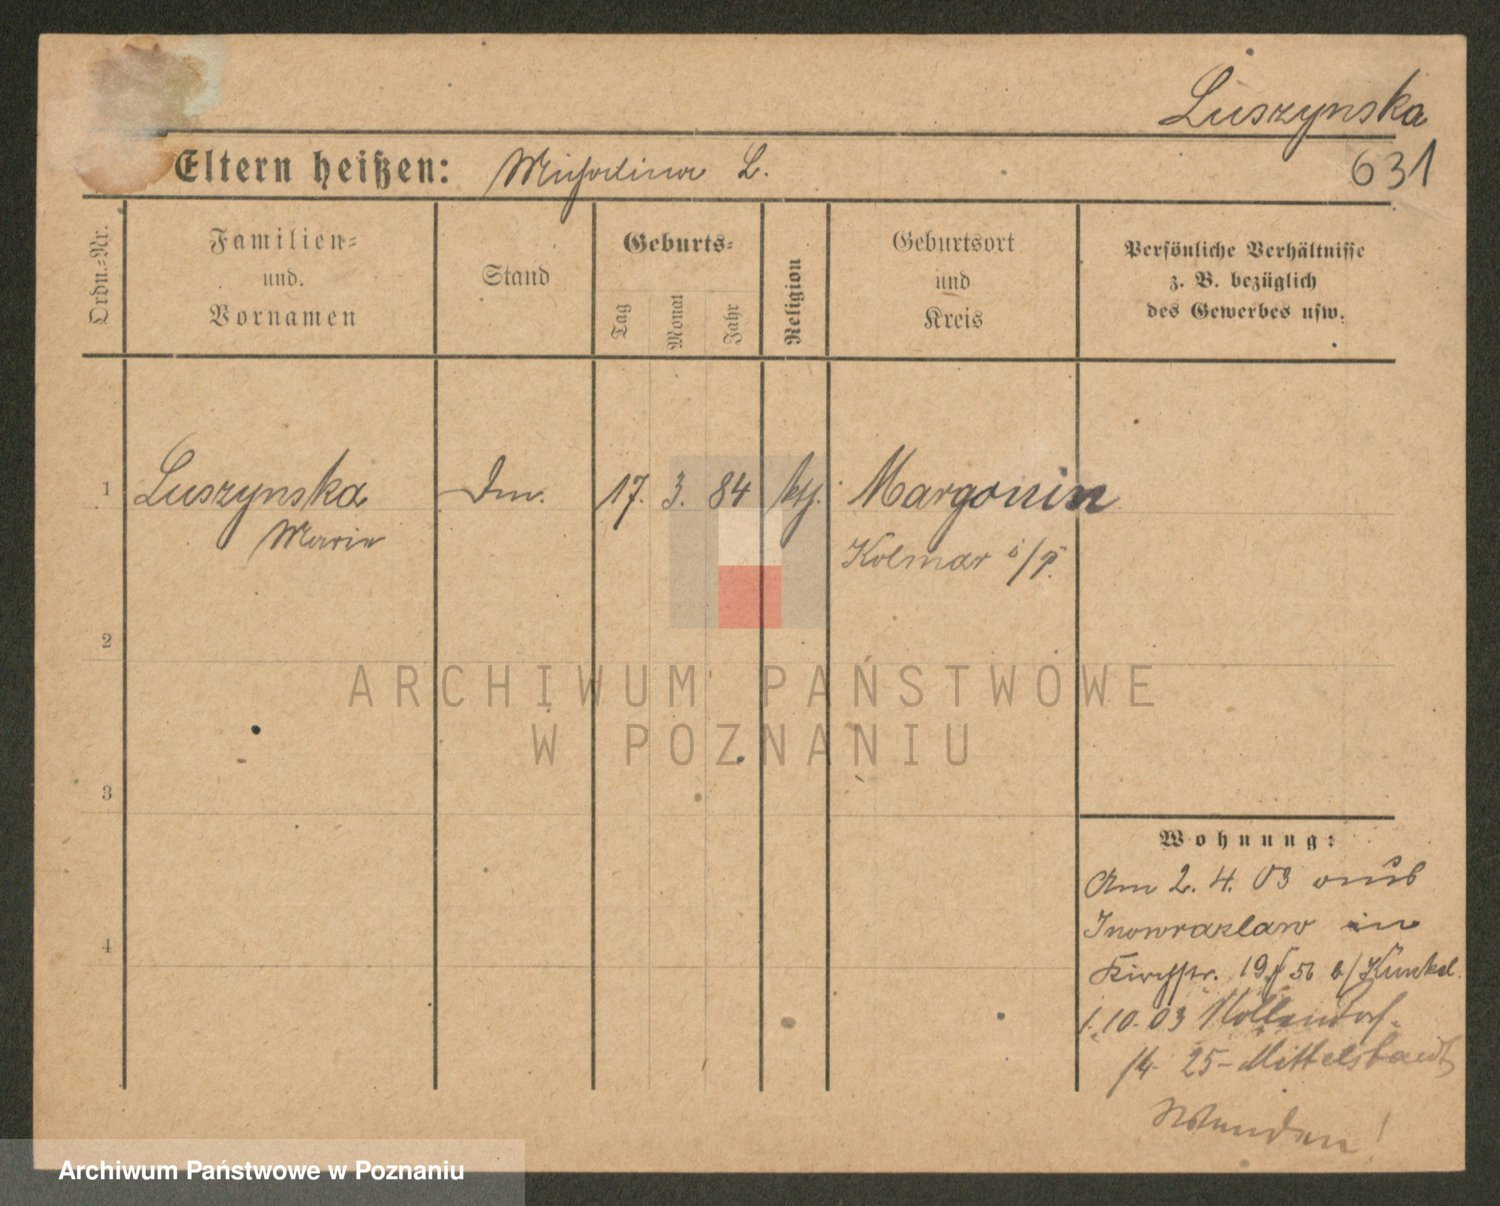 Luszynska
Eltern heißen: Michalina L.
631
Ordn.-Nr.
Familien-
und
Vornamen
Stand
Geburts-
Tag
Monat
Jahr
Religion
Geburtsort
und
Kreis
Persönliche Verhältnisse
z. B. bezüglich
des Gewerbes usw.
1
Luszynska
Marie
Dm.
17. 3. 84
kth.
Margonin
Kolmar i/P.
2
3
4
Wohnung:
Am 2. 4. 03 aus
Inowrazlaw in
Kirchstr. 19 56 b/ Kunkel.
1. 10. 03 Nollendorf-
14 25- Mittelstaedt
Wenden!
ARCHIWUM PAŃSTWOWE
W POZNANIU
Archiwum Państwowe w Poznaniu